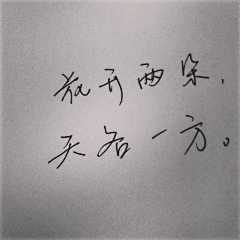 花开两朵，
天各一方。